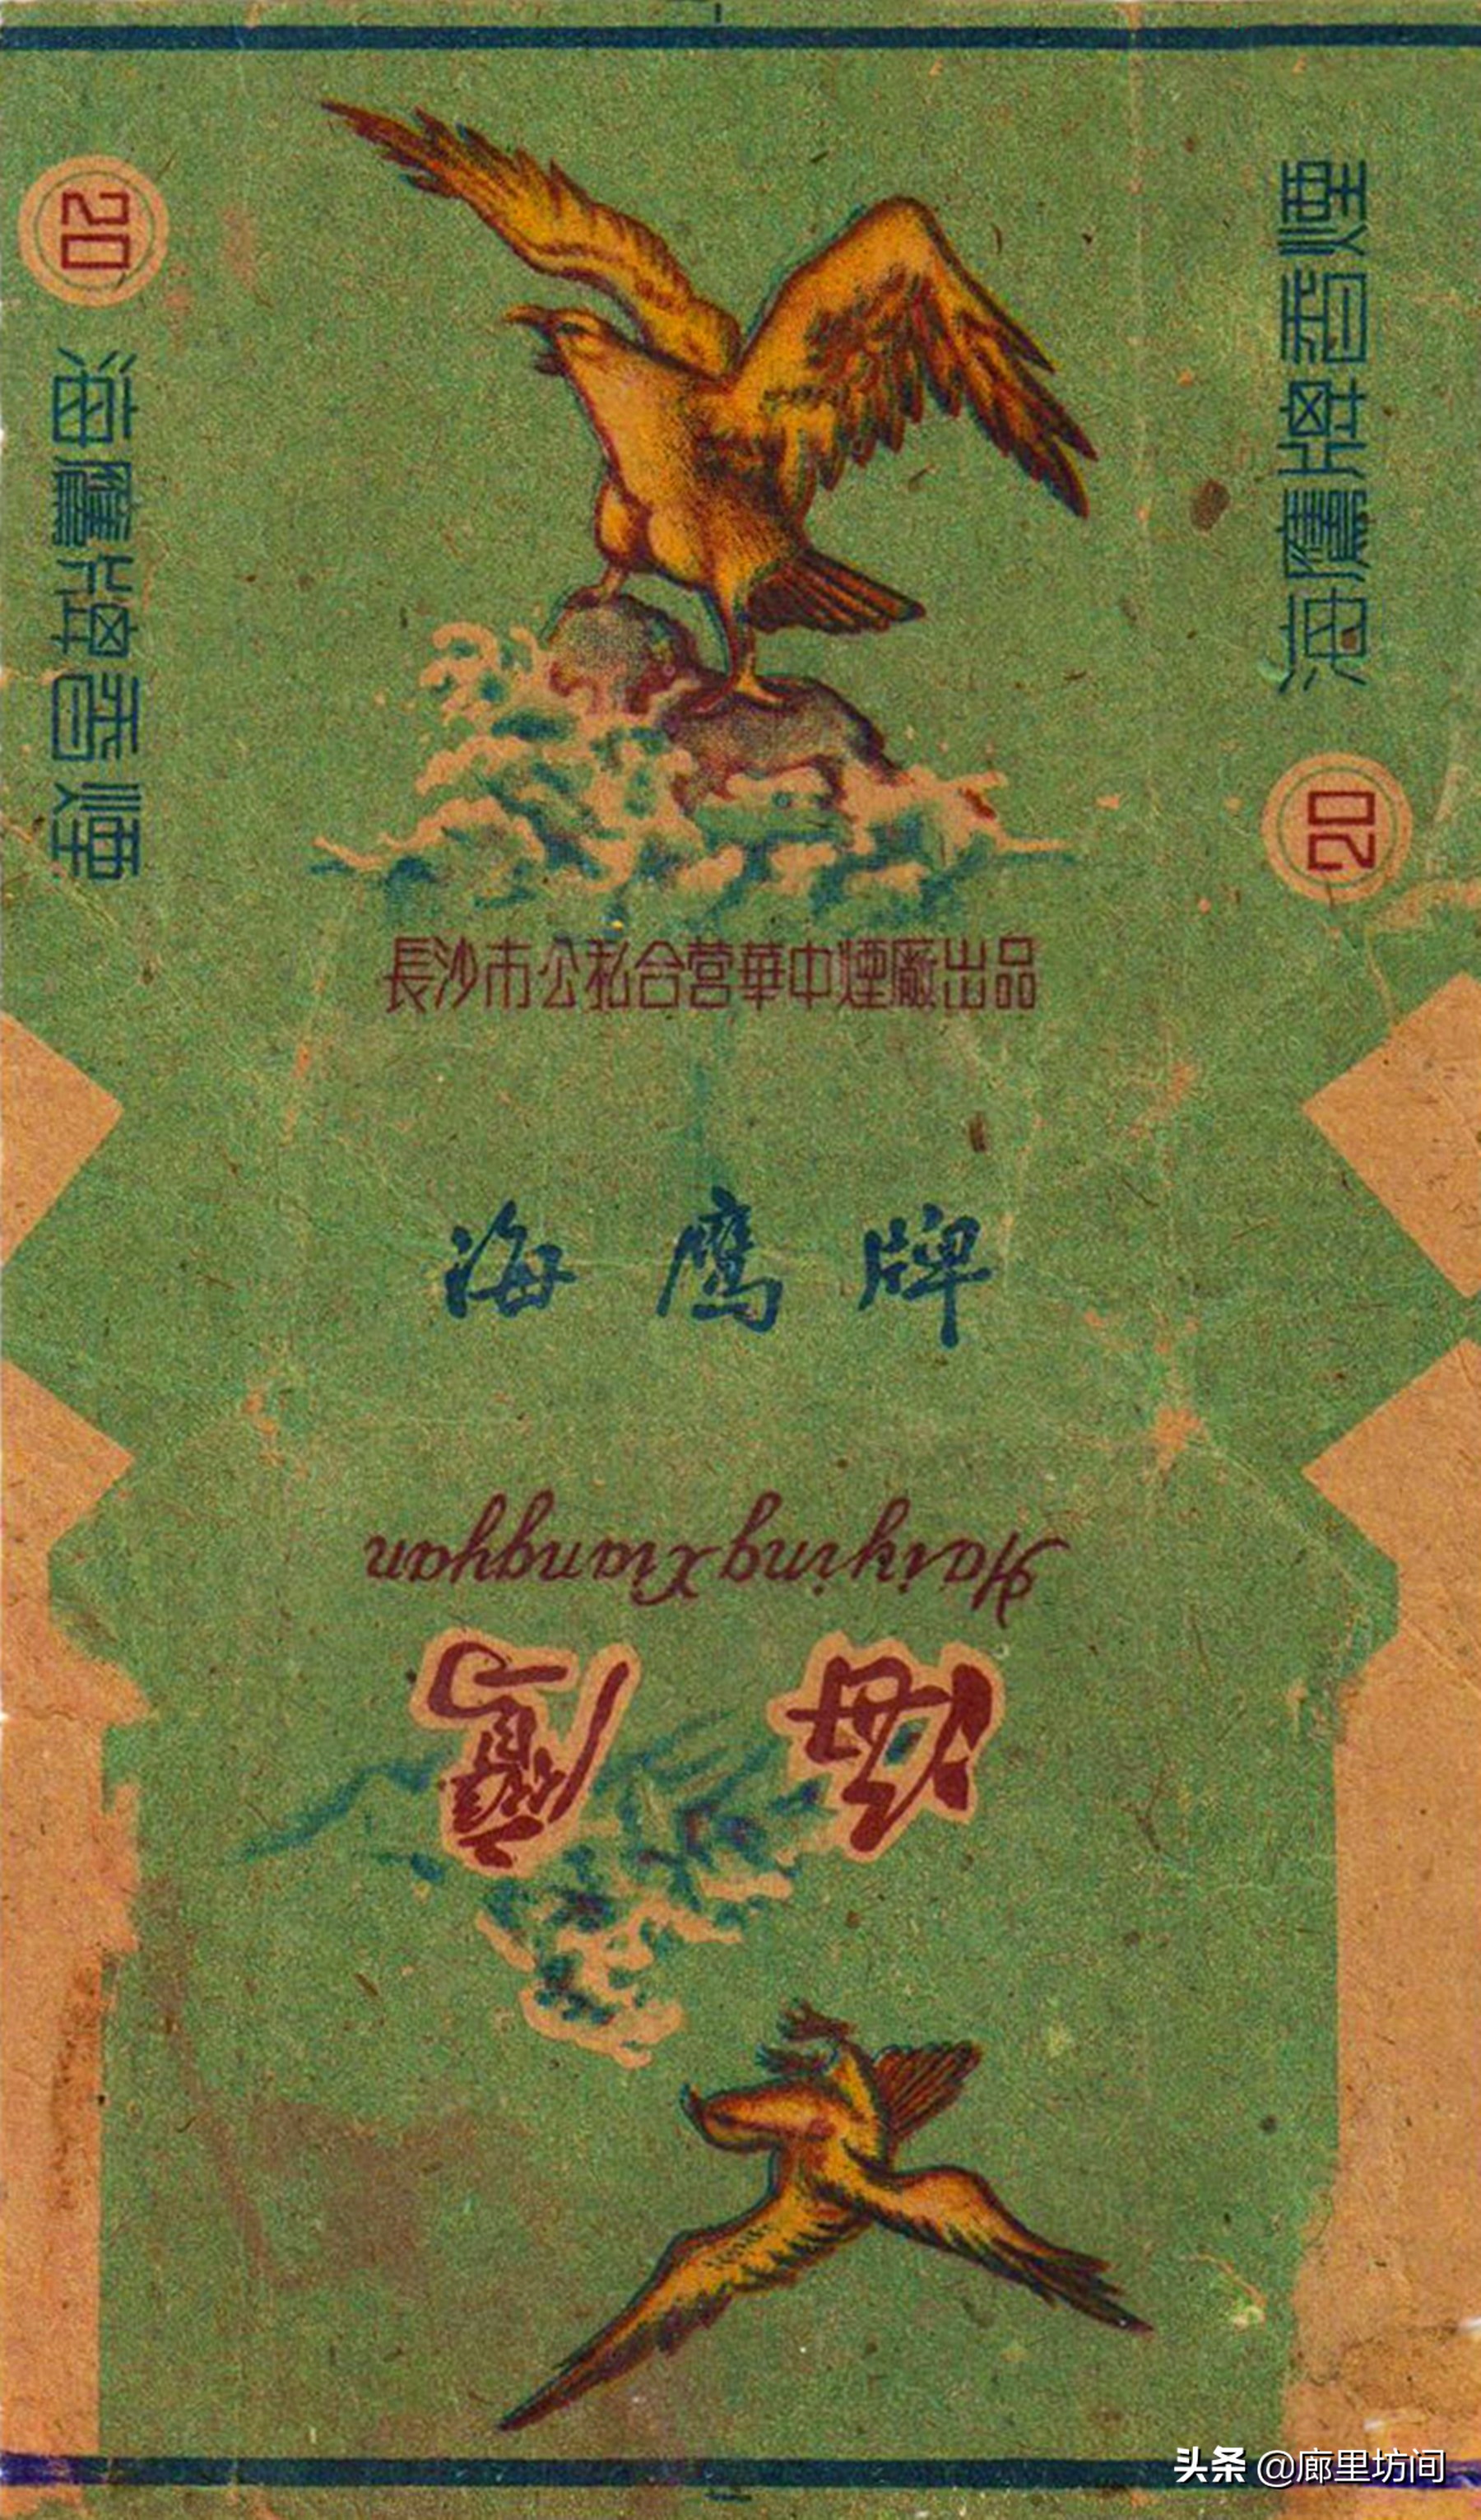 20
海鷹牌香煙
海鷹牌香煙
20
長沙市公私合营華中煙廠出品
海鹰牌
Haiying Xiangyan
海鹰
头条 @廊里坊间